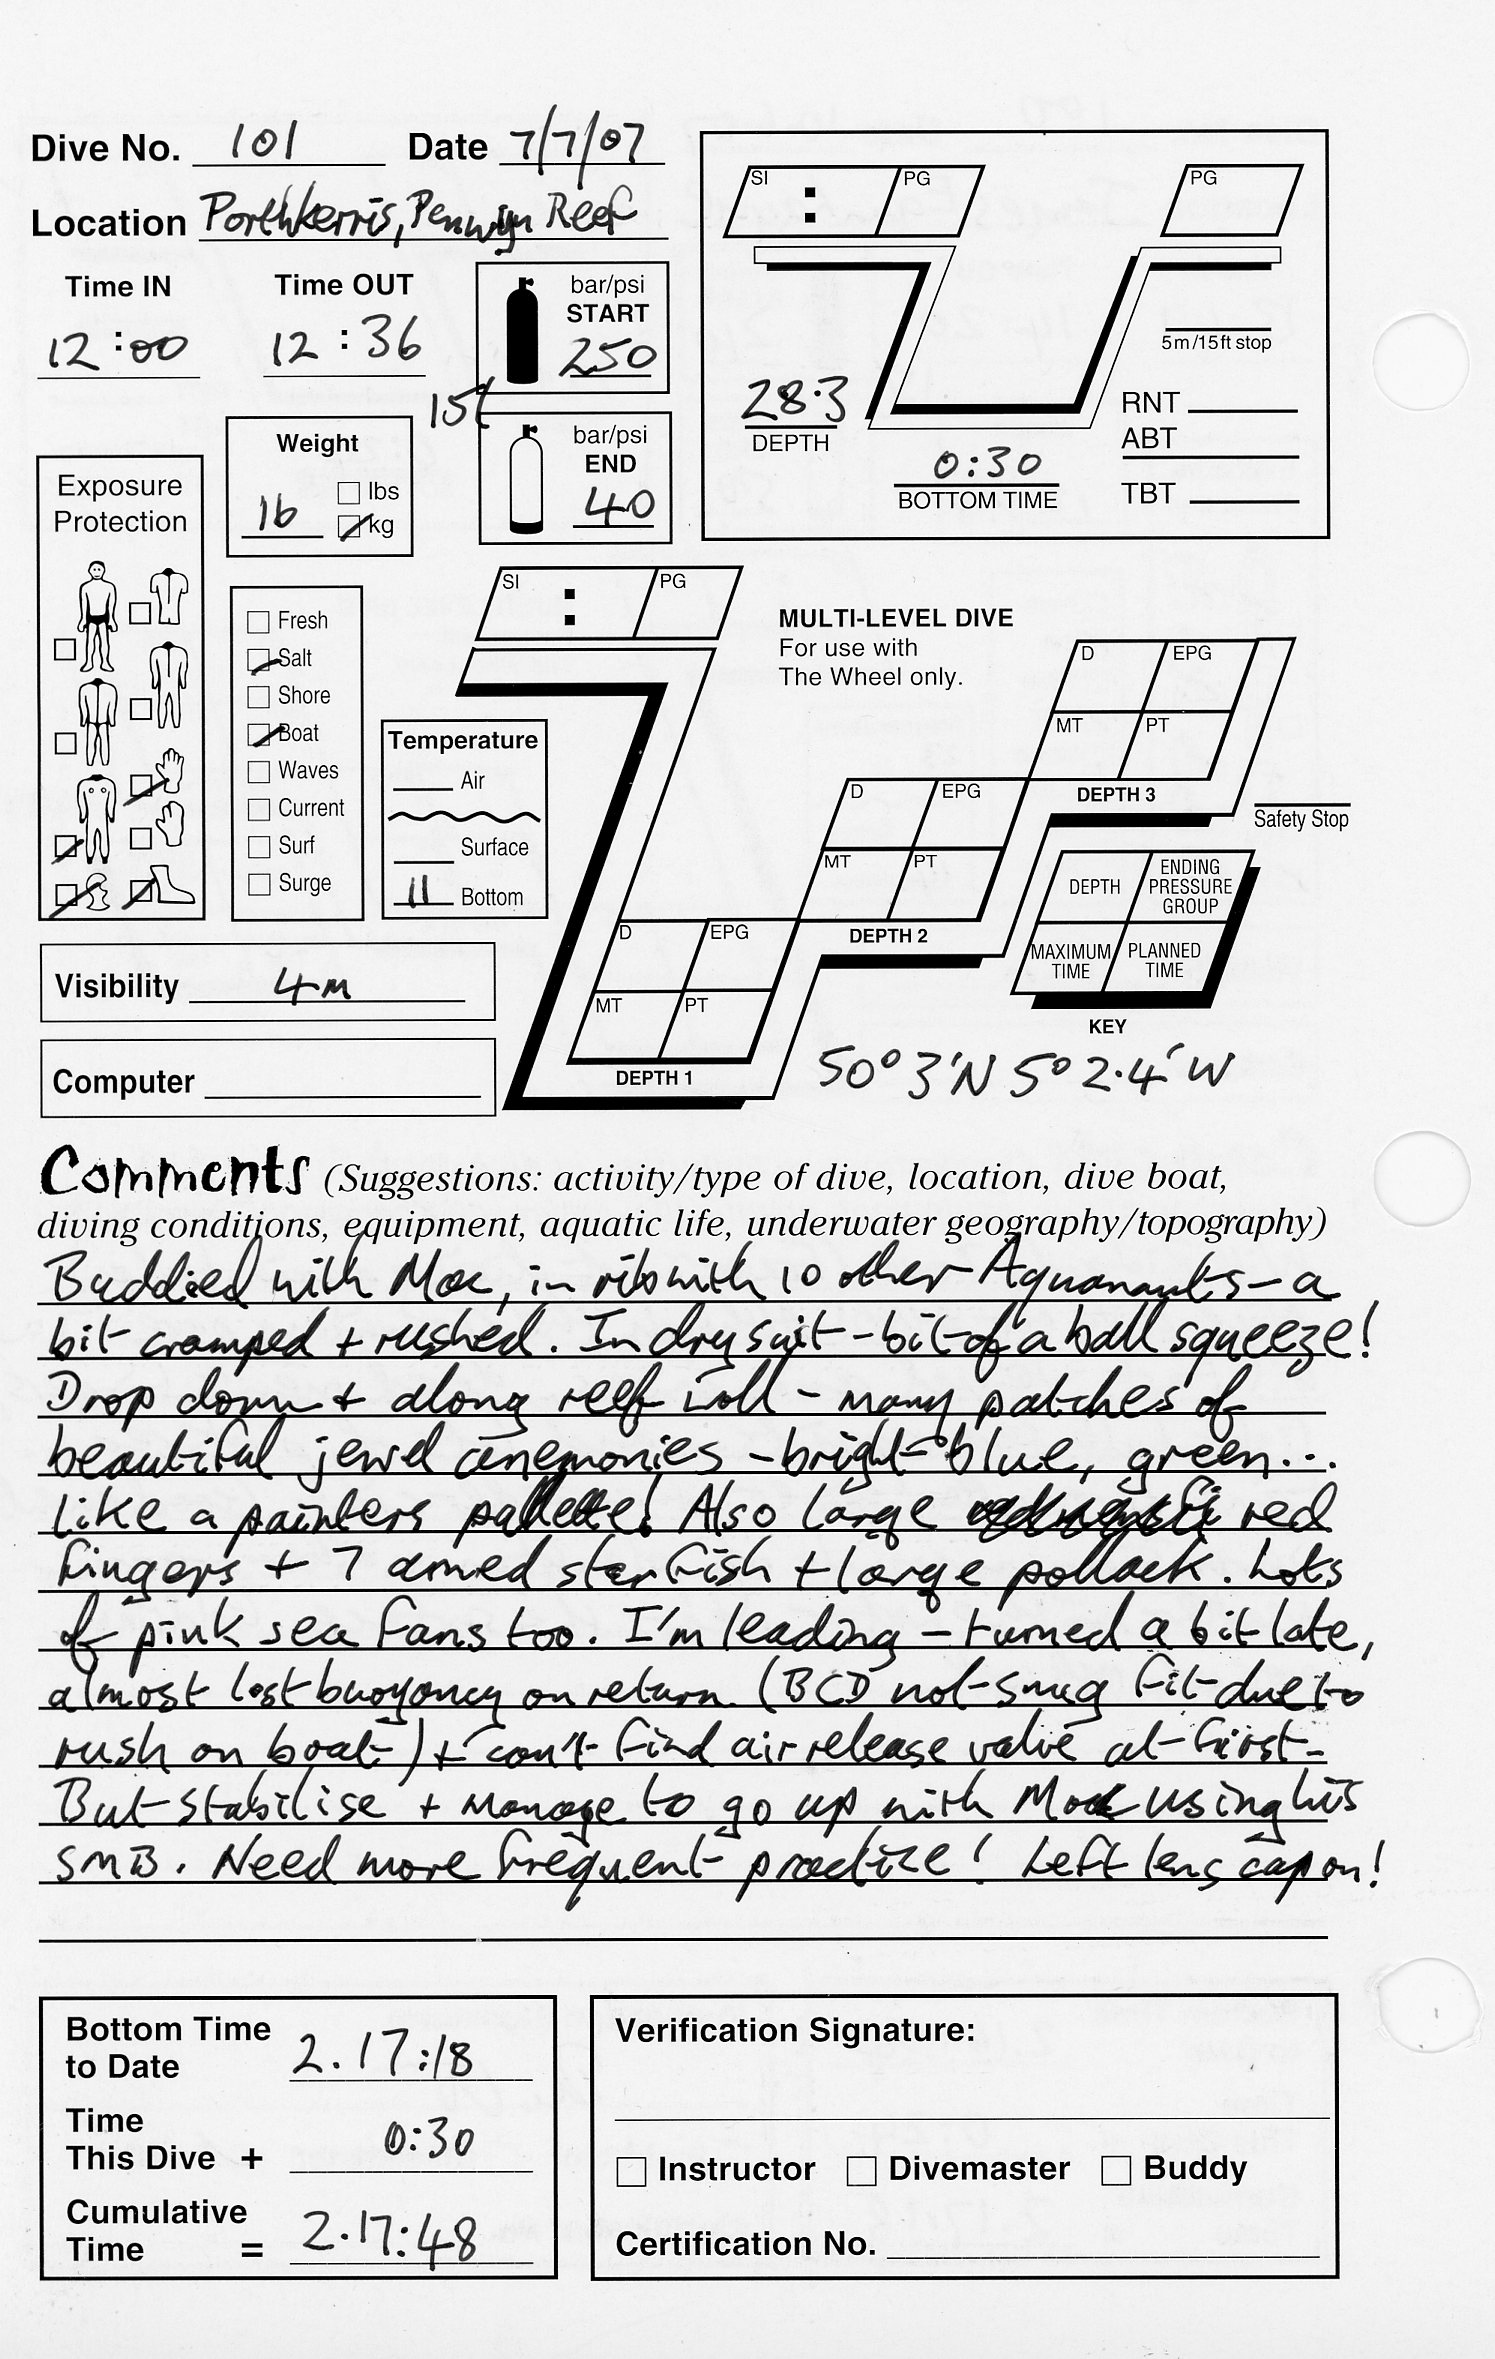 Dive No. 101 Date 7/7/07
Location Porthkerris, Penwyn Reef
Time IN Time OUT
12:00 12:36
bar/psi
START
250
15l
bar/psi
END
40
Weight
16
lbs
kg
Exposure
Protection
Fresh
Salt
Shore
Boat
Waves
Current
Surf
Surge
Temperature
Air
Surface
11 Bottom
Visibility 4m
Computer
SI : PG
PG
5m/15ft stop
28.3
DEPTH
0:30
BOTTOM TIME
RNT
ABT
TBT
SI : PG
MULTI-LEVEL DIVE
For use with
The Wheel only.
D EPG
MT PT
DEPTH 3
D EPG
MT PT
DEPTH 2
D EPG
MT PT
DEPTH 1
Safety Stop
DEPTH
ENDING
PRESSURE
GROUP
MAXIMUM
TIME
PLANNED
TIME
KEY
50° 3'N 5° 2.4'W
Comments (Suggestions: activity/type of dive, location, dive boat,
diving conditions, equipment, aquatic life, underwater geography/topography)
Buddied with Mac, in rib with 10 other Aquanauts - a
bit cramped + rushed. In dry suit - bit of a ball squeeze!
Drop down + along reef wall - many patches of
beautiful jewel anemonies - bright blue, green...
Like a painters pallette! Also large red
fingers + 7 armed starfish + large pollack. Lots
of pink sea fans too. I'm leading - turned a bit late,
almost lost buoyancy on return. (BCD not snug fit due to
rush on boat) + can't find air release valve at first.
But stabilise + manage to go up with Mac using his
SMB. Need more frequent practice! Left lens cap on!
Bottom Time
to Date 2.17:18
Time
This Dive + 0:30
Cumulative
Time = 2.17:48
Verification Signature:
Instructor Divemaster Buddy
Certification No.